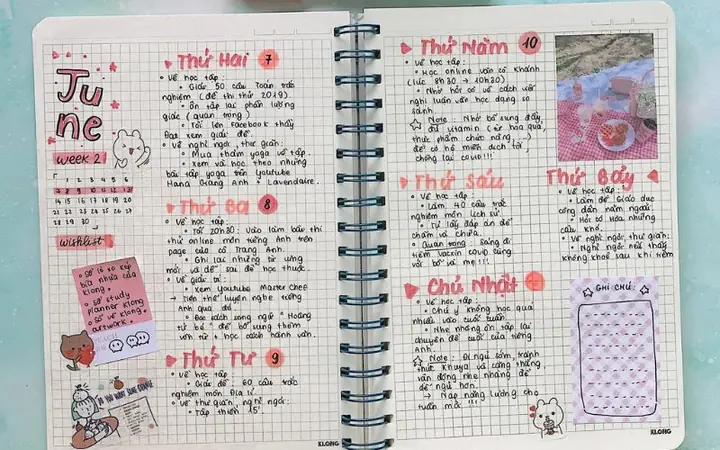 June
week 2
1 2 3 4 5 6
7 8 9 10 11 12 13
14 15 16 17 18 19 20
21 22 23 24 25 26 27
28 29 30
wishlist
• Sổ lò xo kép
bìa nhựa của
Klong.
• Sổ study
planner Klong
• Sổ vẽ Klong
artwork.
DO YOU WANT SOME
Thứ Hai 7
• Về học tập:
• Giải 50 câu Toán trắc
nghiệm (đề thi thử 2019).
• Ôn tập lại phần lượng
giác (quan trọng)
• Tối lên Facebook thầy
Đạt xem giải đề.
• Về nghỉ ngơi, thư giãn:
• Mua thảm yoga về tập.
• Xem và học theo những
bài tập yoga trên Youtube
Hana Giang Anh + Lavendaire.
Thứ Ba 8
• Về học tập:
• Tối 20h30: Vào làm bài thi
thử online môn tiếng Anh trên
page của cô Trang Anh.
• Ghi lại những từ vựng
mới và để sau để học thuộc.
• Về giải trí:
• Xem Youtube Master Chef
→ tiện thể luyện nghe tiếng
Anh qua đó.
• Đọc sách song ngữ "Hoàng
tử bé" để bổ sung thêm
vốn từ + học cách hành văn.
Thứ Tư 9
• Về học tập:
• Giải đề 60 câu trắc
nghiệm môn Địa lí
• Về thư giãn, nghỉ ngơi:
• Tập thiền 15'
KLONG
Thứ Năm 10
• Về học tập:
• Học online văn cô Khánh
(lúc 8h30 → 10h30)
• Nhớ hỏi cô về cách viết
nghị luận văn học dạng so
sánh
Note: Nhớ bổ sung đầy
đủ vitamin (từ hoa quả,
thực phẩm chức năng,...) để
để có hệ miễn dịch tốt,
chống lại covid!!!
Thứ Sáu
• Về học tập:
• Làm 40 câu trắc
nghiệm môn lịch sử.
• Tự lấy đáp án để
chấm và chữa.
• Quan trọng: Sáng đi
tiêm Vacxin covid cùng
với bố và mẹ!!!.
Chủ Nhật
• Về học tập:
• Chú ý không học quá
nhiều vào cuối tuần.
• Nhẹ nhàng ôn tập lại
chuyên đề cuối của tiếng
Anh.
Note: Đi ngủ sớm, tránh
thức khuya và căng thẳng,
vận động nhẹ nhàng để
dễ ngủ hơn.
→ Nạp năng lượng cho
tuần mới!!!
Thứ Bảy
• Về học tập:
• Làm đề Giáo dục
công dân năm ngoái.
• Hỏi cô Hoa những
câu khó.
• Về nghỉ ngơi, thư giãn:
• Nghỉ ngơi nếu thấy
không khoẻ sau khi tiêm
GHI CHÚ:
KLONG